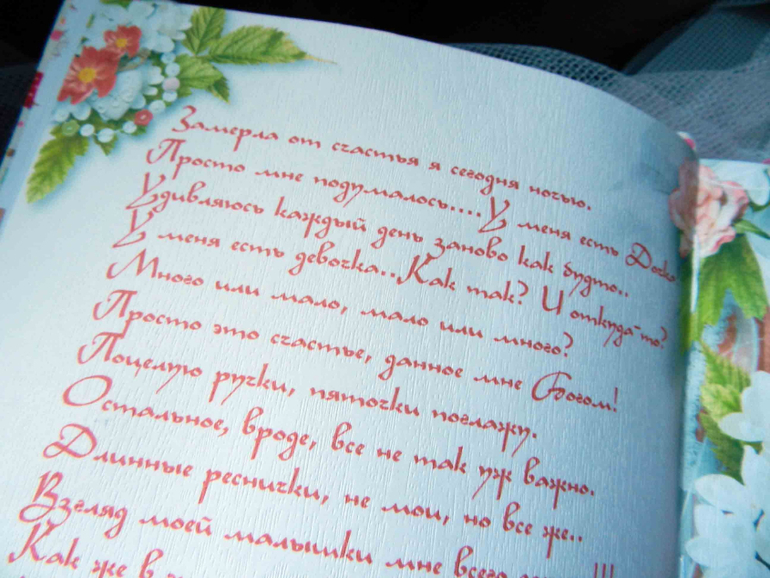 Замерла от счастья я сегодня ночью.
Просто мне подумалось.... У меня есть Дочка
Удивляюсь каждый день заново как будто..
У меня есть девочка.. Как так? И откуда-то?
Много или мало, мало или много?
Просто это счастье, данное мне Богом!
Поцелую ручки, пяточки поглажу.
Остальное, вроде, все не так уж важно.
Длинные реснички, не мои, но все же..
Взгляд моей малышки мне всего !!!
Как же в